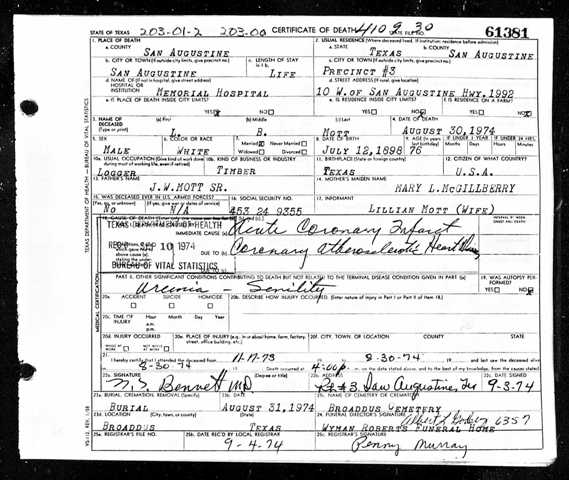 STATE OF TEXAS 203-01-2 203-00 CERTIFICATE OF DEATH 410 9 30 STATE FILE NO. 61381
1. PLACE OF DEATH 2. USUAL RESIDENCE (Where deceased lived. If institution: residence before admission)
a. COUNTY a. STATE b. COUNTY
SAN AUGUSTINE TEXAS SAN AUGUSTINE
b. CITY OR TOWN (If outside city limits, give precinct no.) c. LENGTH OF STAY c. CITY OR TOWN (If outside city limits, give precinct no.)
SAN AUGUSTINE LIFE PRECINCT #3
d. NAME OF (If not in hospital, give street address) HOSPITAL OR INSTITUTION d. STREET ADDRESS (If rural, give location)
MEMORIAL HOSPITAL 10 W. OF SAN AUGUSTINE HWY. 1992
e. IS PLACE OF DEATH INSIDE CITY LIMITS? e. IS RESIDENCE INSIDE CITY LIMITS? f. IS RESIDENCE ON A FARM?
YES NO YES NO YES NO
3. NAME OF DECEASED (Type or print) (a) First (b) Middle (c) Last 4. DATE OF DEATH
L. B. MOTT AUGUST 30, 1974
5. SEX 6. COLOR OR RACE 7. Married Never Married Widowed Divorced 8. DATE OF BIRTH 9. AGE (In years last birthday) IF UNDER 1 YEAR IF UNDER 24 HRS.
MALE WHITE JULY 12, 1898 76
10a. USUAL OCCUPATION (Give kind of work done during most of working life, even if retired) 10b. KIND OF BUSINESS OR INDUSTRY 11. BIRTHPLACE (State or foreign country) 12. CITIZEN OF WHAT COUNTRY?
LOGGER TIMBER TEXAS U.S.A.
13. FATHER'S NAME 14. MOTHER'S MAIDEN NAME
J.W. MOTT SR. MARY L. MCGILLBERRY
15. WAS DECEASED EVER IN U.S. ARMED FORCES? 16. SOCIAL SECURITY NO. 17. INFORMANT
(Yes, no, or unknown) (If yes, give war or dates of service)
NO N/A 453 24 9355 LILLIAN MOTT (WIFE)
18. CAUSE OF DEATH INTERVAL BETWEEN ONSET AND DEATH
TEXAS DEPARTMENT OF HEALTH
IMMEDIATE CAUSE (a) Acute Coronary Infarct
REC'D SEP 10 1974 DUE TO (b) Coronary atherosclerotic Heart
BUREAU OF VITAL STATISTICS
PART II. OTHER SIGNIFICANT CONDITIONS CONTRIBUTING TO DEATH BUT NOT RELATED TO THE TERMINAL DISEASE CONDITION GIVEN IN PART I(a) 19. WAS AUTOPSY PERFORMED?
Uremia - Senility YES NO
20a. ACCIDENT SUICIDE HOMICIDE 20b. DESCRIBE HOW INJURY OCCURRED. (Enter nature of injury in Part I or Part II of item 18.)
20c. TIME OF INJURY Hour Month Day Year
a.m.
p.m.
20d. INJURY OCCURRED 20e. PLACE OF INJURY (e.g. in or about home, farm, factory, street, office building, etc.) 20f. CITY, TOWN, OR LOCATION COUNTY STATE
WHILE AT WORK NOT WHILE AT WORK
21. I hereby certify that I attended the deceased from 11-17-73 to 8-30-74 and last saw the deceased alive
on 8-30-74 Death occurred at 4:00 p. m. on the date stated above, and to the best of my knowledge, from the causes stated.
22a. SIGNATURE 22b. ADDRESS 22c. DATE SIGNED
N. S. Bennett MD Rt #3, San Augustine, Tex 9-3-74
23a. BURIAL, CREMATION, REMOVAL (Specify) 23b. DATE 23c. NAME OF CEMETERY OR CREMATORY
BURIAL AUGUST 31, 1974 BROADDUS CEMETERY
23d. LOCATION (City, town, or county) (State) 24. FUNERAL DIRECTOR'S SIGNATURE
6357
BROADDUS TEXAS WYMAN ROBERTS FUNERAL HOME
25a. REGISTRAR'S FILE NO. 25b. DATE REC'D BY LOCAL REGISTRAR 25c. REGISTRAR'S SIGNATURE
9-4-74 Penny Murray
TEXAS DEPARTMENT OF HEALTH — BUREAU OF VITAL STATISTICS
MEDICAL CERTIFICATION